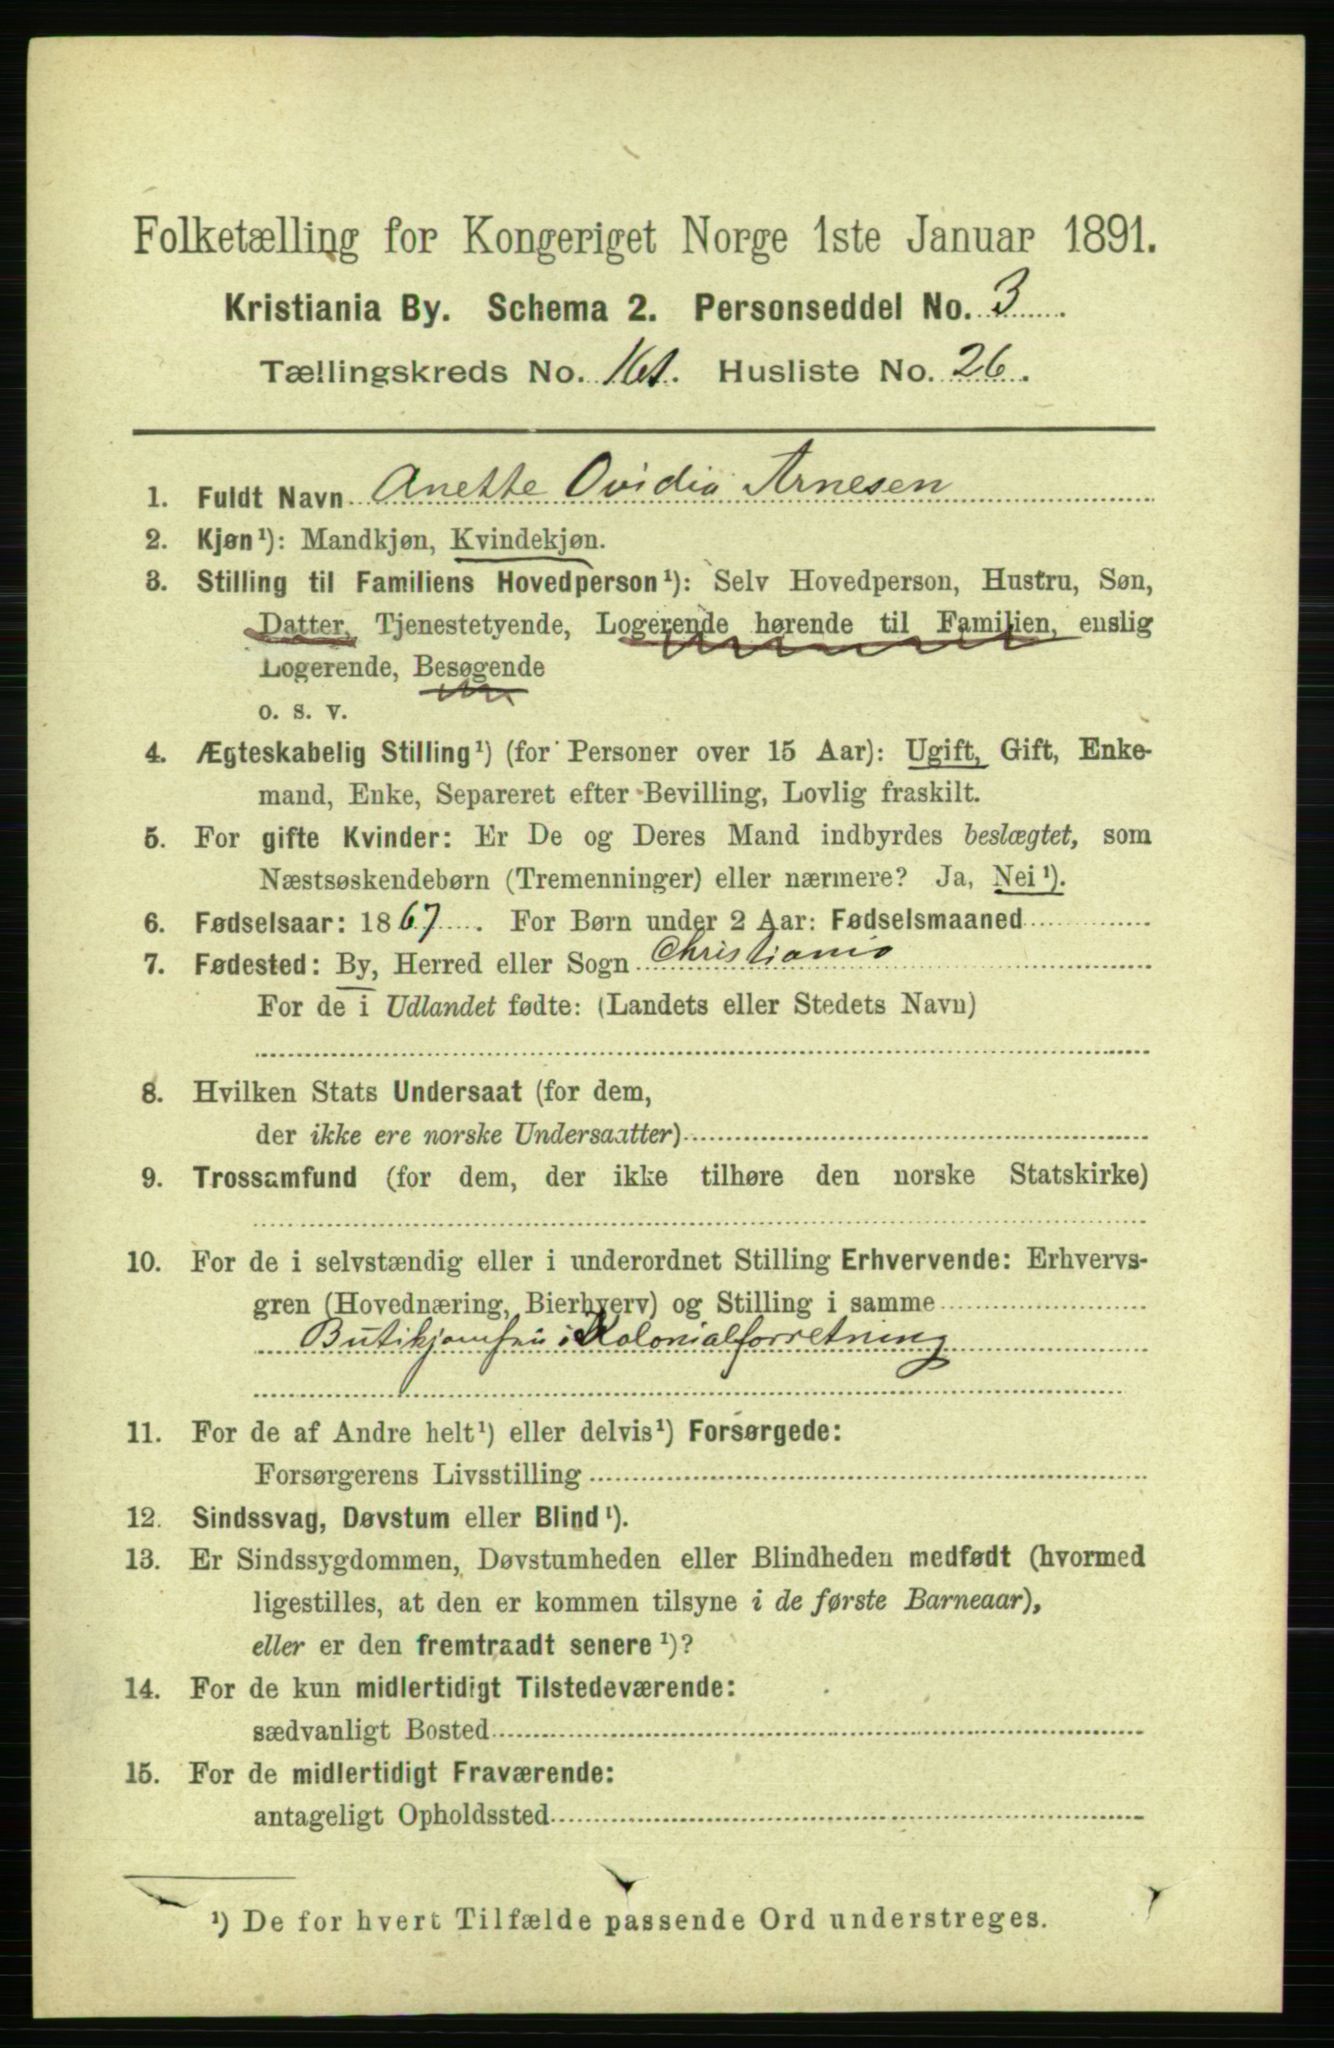 Folketælling for Kongeriget Norge 1ste Januar 1891.
Kristiania By. Schema 2. Personseddel No. 3.
Tællingskreds No. 161. Husliste No. 26.
1. Fuldt Navn Anette Ovidia Arnesen
2. Kjøn¹): Mandkjøn, Kvindekjøn.
3. Stilling til Familiens Hovedperson¹): Selv Hovedperson, Hustru, Søn,
Datter, Tjenestetyende, Logerende hørende til Familien, enslig
Logerende, Besøgende
o. s. v.
4. Ægteskabelig Stilling¹) (for Personer over 15 Aar): Ugift, Gift, Enke-
mand, Enke, Separeret efter Bevilling, Lovlig fraskilt.
5. For gifte Kvinder: Er De og Deres Mand indbyrdes beslægtet, som
Næstsøskendebørn (Tremenninger) eller nærmere? Ja, Nei¹).
6. Fødselsaar: 1867. For Børn under 2 Aar: Fødselsmaaned
7. Fødested: By, Herred eller Sogn Christiania
For de i Udlandet fødte: (Landets eller Stedets Navn)
8. Hvilken Stats Undersaat (for dem,
der ikke ere norske Undersaatter)
9. Trossamfund (for dem, der ikke tilhøre den norske Statskirke)
10. For de i selvstændig eller i underordnet Stilling Erhvervende: Erhvervs-
gren (Hovednæring, Bierhverv) og Stilling i samme
Butikjomfru i Kolonialforretning
11. For de af Andre helt¹) eller delvis¹) Forsørgede:
Forsørgerens Livsstilling
12. Sindssvag, Døvstum eller Blind¹).
13. Er Sindssygdommen, Døvstumheden eller Blindheden medfødt (hvormed
ligestilles, at den er kommen tilsyne i de første Barneaar),
eller er den fremtraadt senere¹)?
14. For de kun midlertidigt Tilstedeværende:
sædvanligt Bosted
15. For de midlertidigt Fraværende:
antageligt Opholdssted
¹) De for hvert Tilfælde passende Ord understreges.